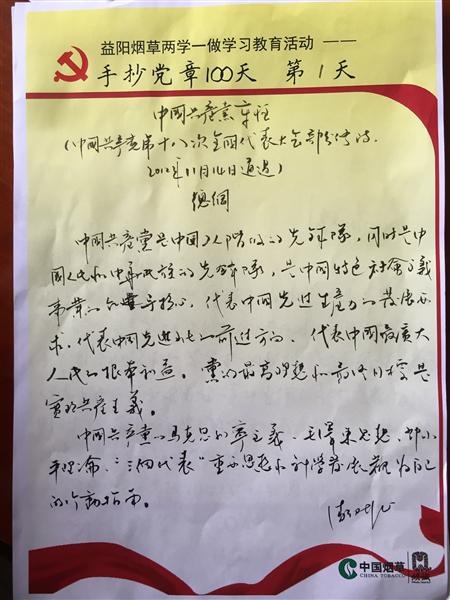 益阳烟草两学一做学习教育活动 ——
手抄党章100天 第1天
中國共產黨章程
（中國共产党第十八次全國代表大会部分修改.
2012年11月14日通過）
總綱
中國共產黨是中国工人階级的先锋隊，同时是中
國人民和中華民族的先锋隊，是中国特色社會主義
事業的领導核心，代表中國先进生產力的发展要
求，代表中国先進文化的前进方向，代表中國最廣大
人民的根本利益。黨的最高理想和最终目標是
實现共產主義。
中國共產黨以马克思列宁主義、毛澤东思想、邓小
平理论、“三個代表”重要思想和科学发展觀为自己
的行動指南。
中国烟草
CHINA TOBACCO